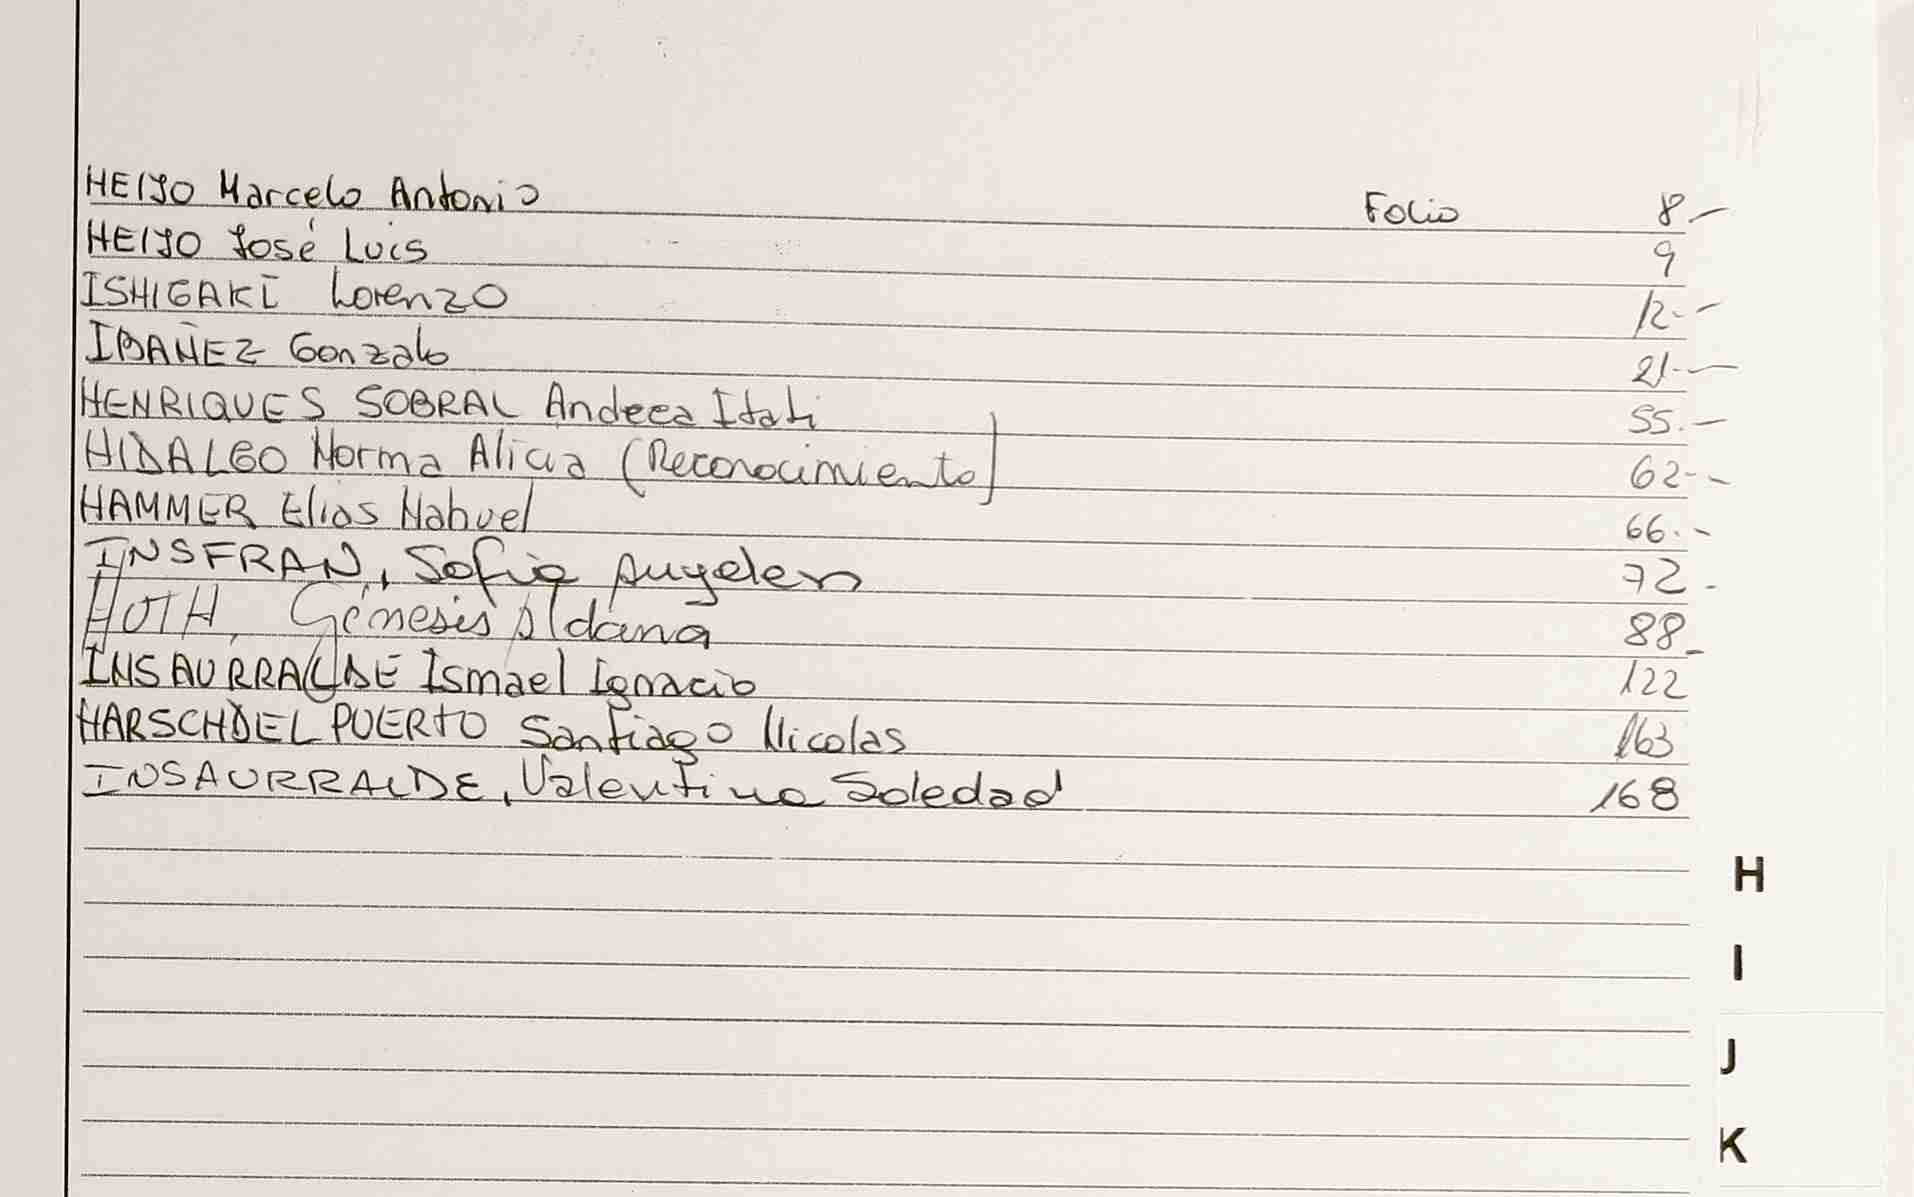 HEIJO Marcelo Antonio Folio 8-
HEIJO José Luis 9
ISHIGAKI Lorenzo 12.-
IBAÑEZ Gonzalo 21.-
HENRIQUES SOBRAL Andrea Itati 55.-
HIDALGO Norma Alicia (Reconocimiento) 62.-
HAMMER Elias Nahuel 66.-
INSFRAN, Sofia Angeles 72-
HOTH, Génesis Aldana 88-
INSAURRALDE Ismael Ignacio 122
HARSCHDEL PUERTO Santiago Nicolas 163
INSAURRALDE, Valentina Soledad 168
H
I
J
K